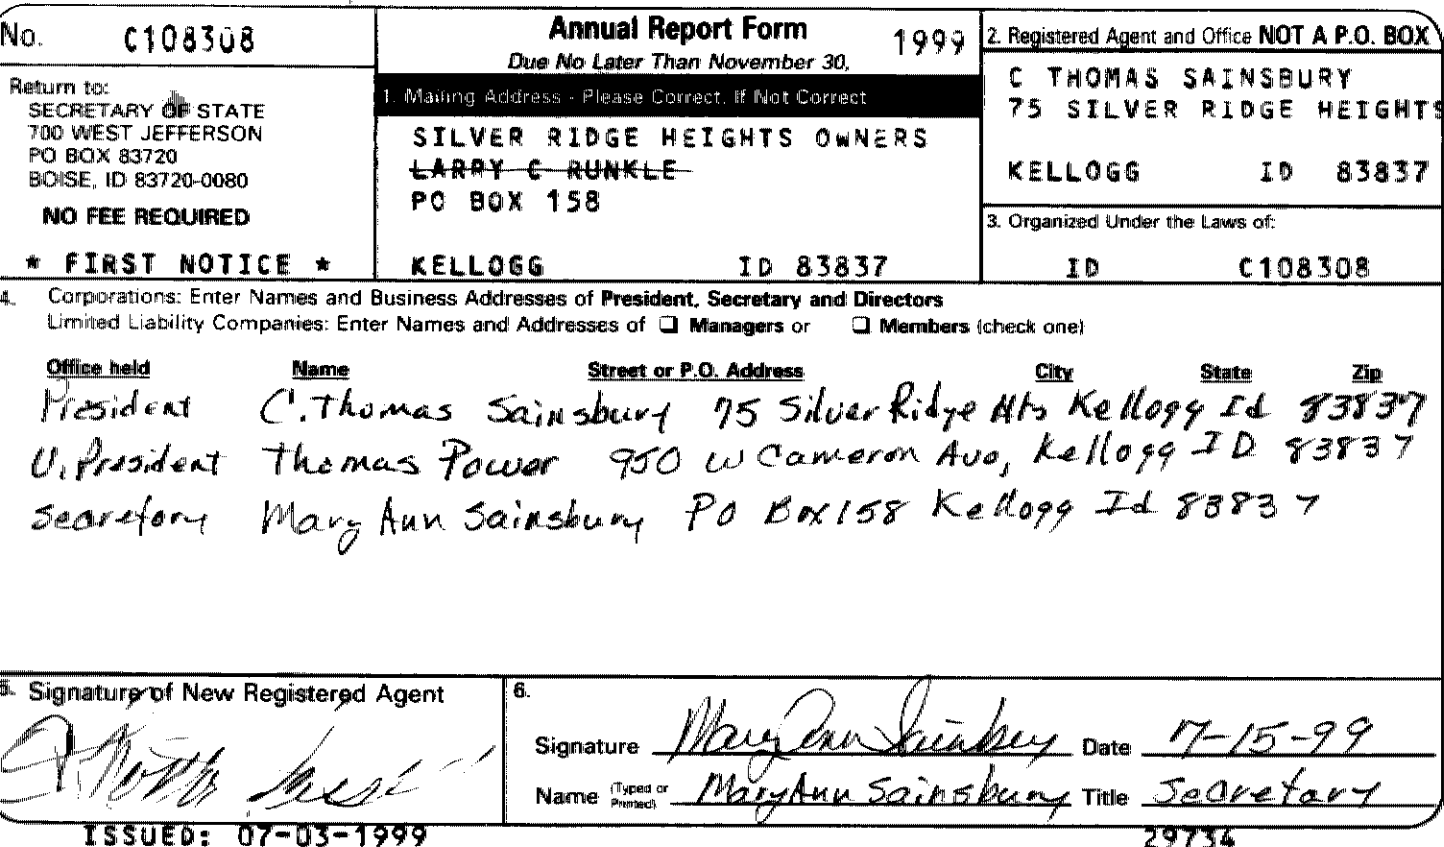 No. C108308
Annual Report Form 1999
Due No Later Than November 30,
Return to:
SECRETARY OF STATE
700 WEST JEFFERSON
PO BOX 83720
BOISE, ID 83720-0080
NO FEE REQUIRED
* FIRST NOTICE *
1. Mailing Address - Please Correct, If Not Correct
SILVER RIDGE HEIGHTS OWNERS
LARRY C RUNKLE
PO BOX 158
KELLOGG ID 83837
2. Registered Agent and Office NOT A P.O. BOX
C THOMAS SAINSBURY
75 SILVER RIDGE HEIGHTS
KELLOGG ID 83837
3. Organized Under the Laws of:
ID C108308
4. Corporations: Enter Names and Business Addresses of President, Secretary and Directors
Limited Liability Companies: Enter Names and Addresses of ☐ Managers or ☐ Members (check one)
Office held Name Street or P.O. Address City State Zip
President C. Thomas Sainsbury 75 Silver Ridge Hts Kellogg Id 83837
V. President Thomas Power 950 W Cameron Ave, Kellogg ID 83837
Secretary Mary Ann Sainsbury PO Box 158 Kellogg Id 83837
5. Signature of New Registered Agent
6.
Signature Mary Ann Sainsbury Date 7-15-99
Name (Typed or Printed) Mary Ann Sainsbury Title Secretary
ISSUED: 07-03-1999
29734